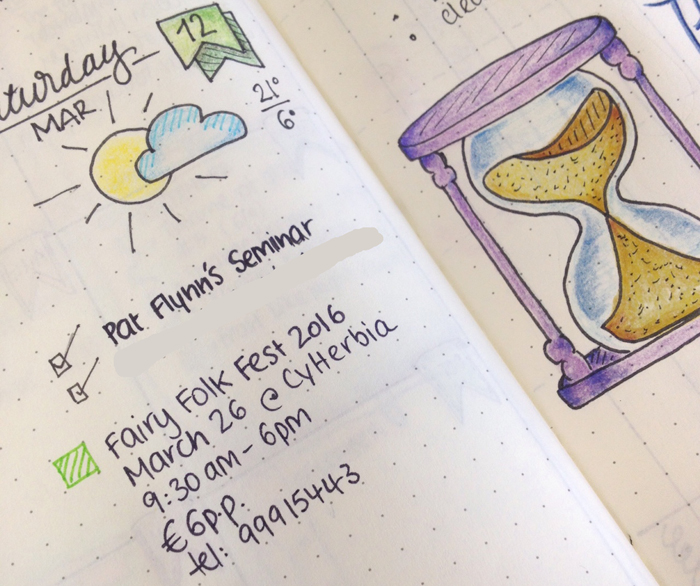 12
aturday
MAR
21°
6°
Pat Flynn's Seminar
Fairy Folk Fest 2016
March 26 @ CyHerbia
9:30am - 6pm
€6p.p.
tel: 99915443